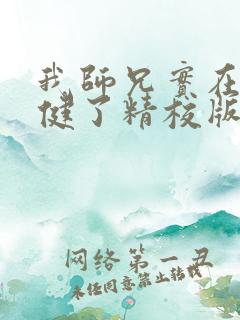 我師兄實在
健了精校版
网络第一丑
未任同意禁止转载